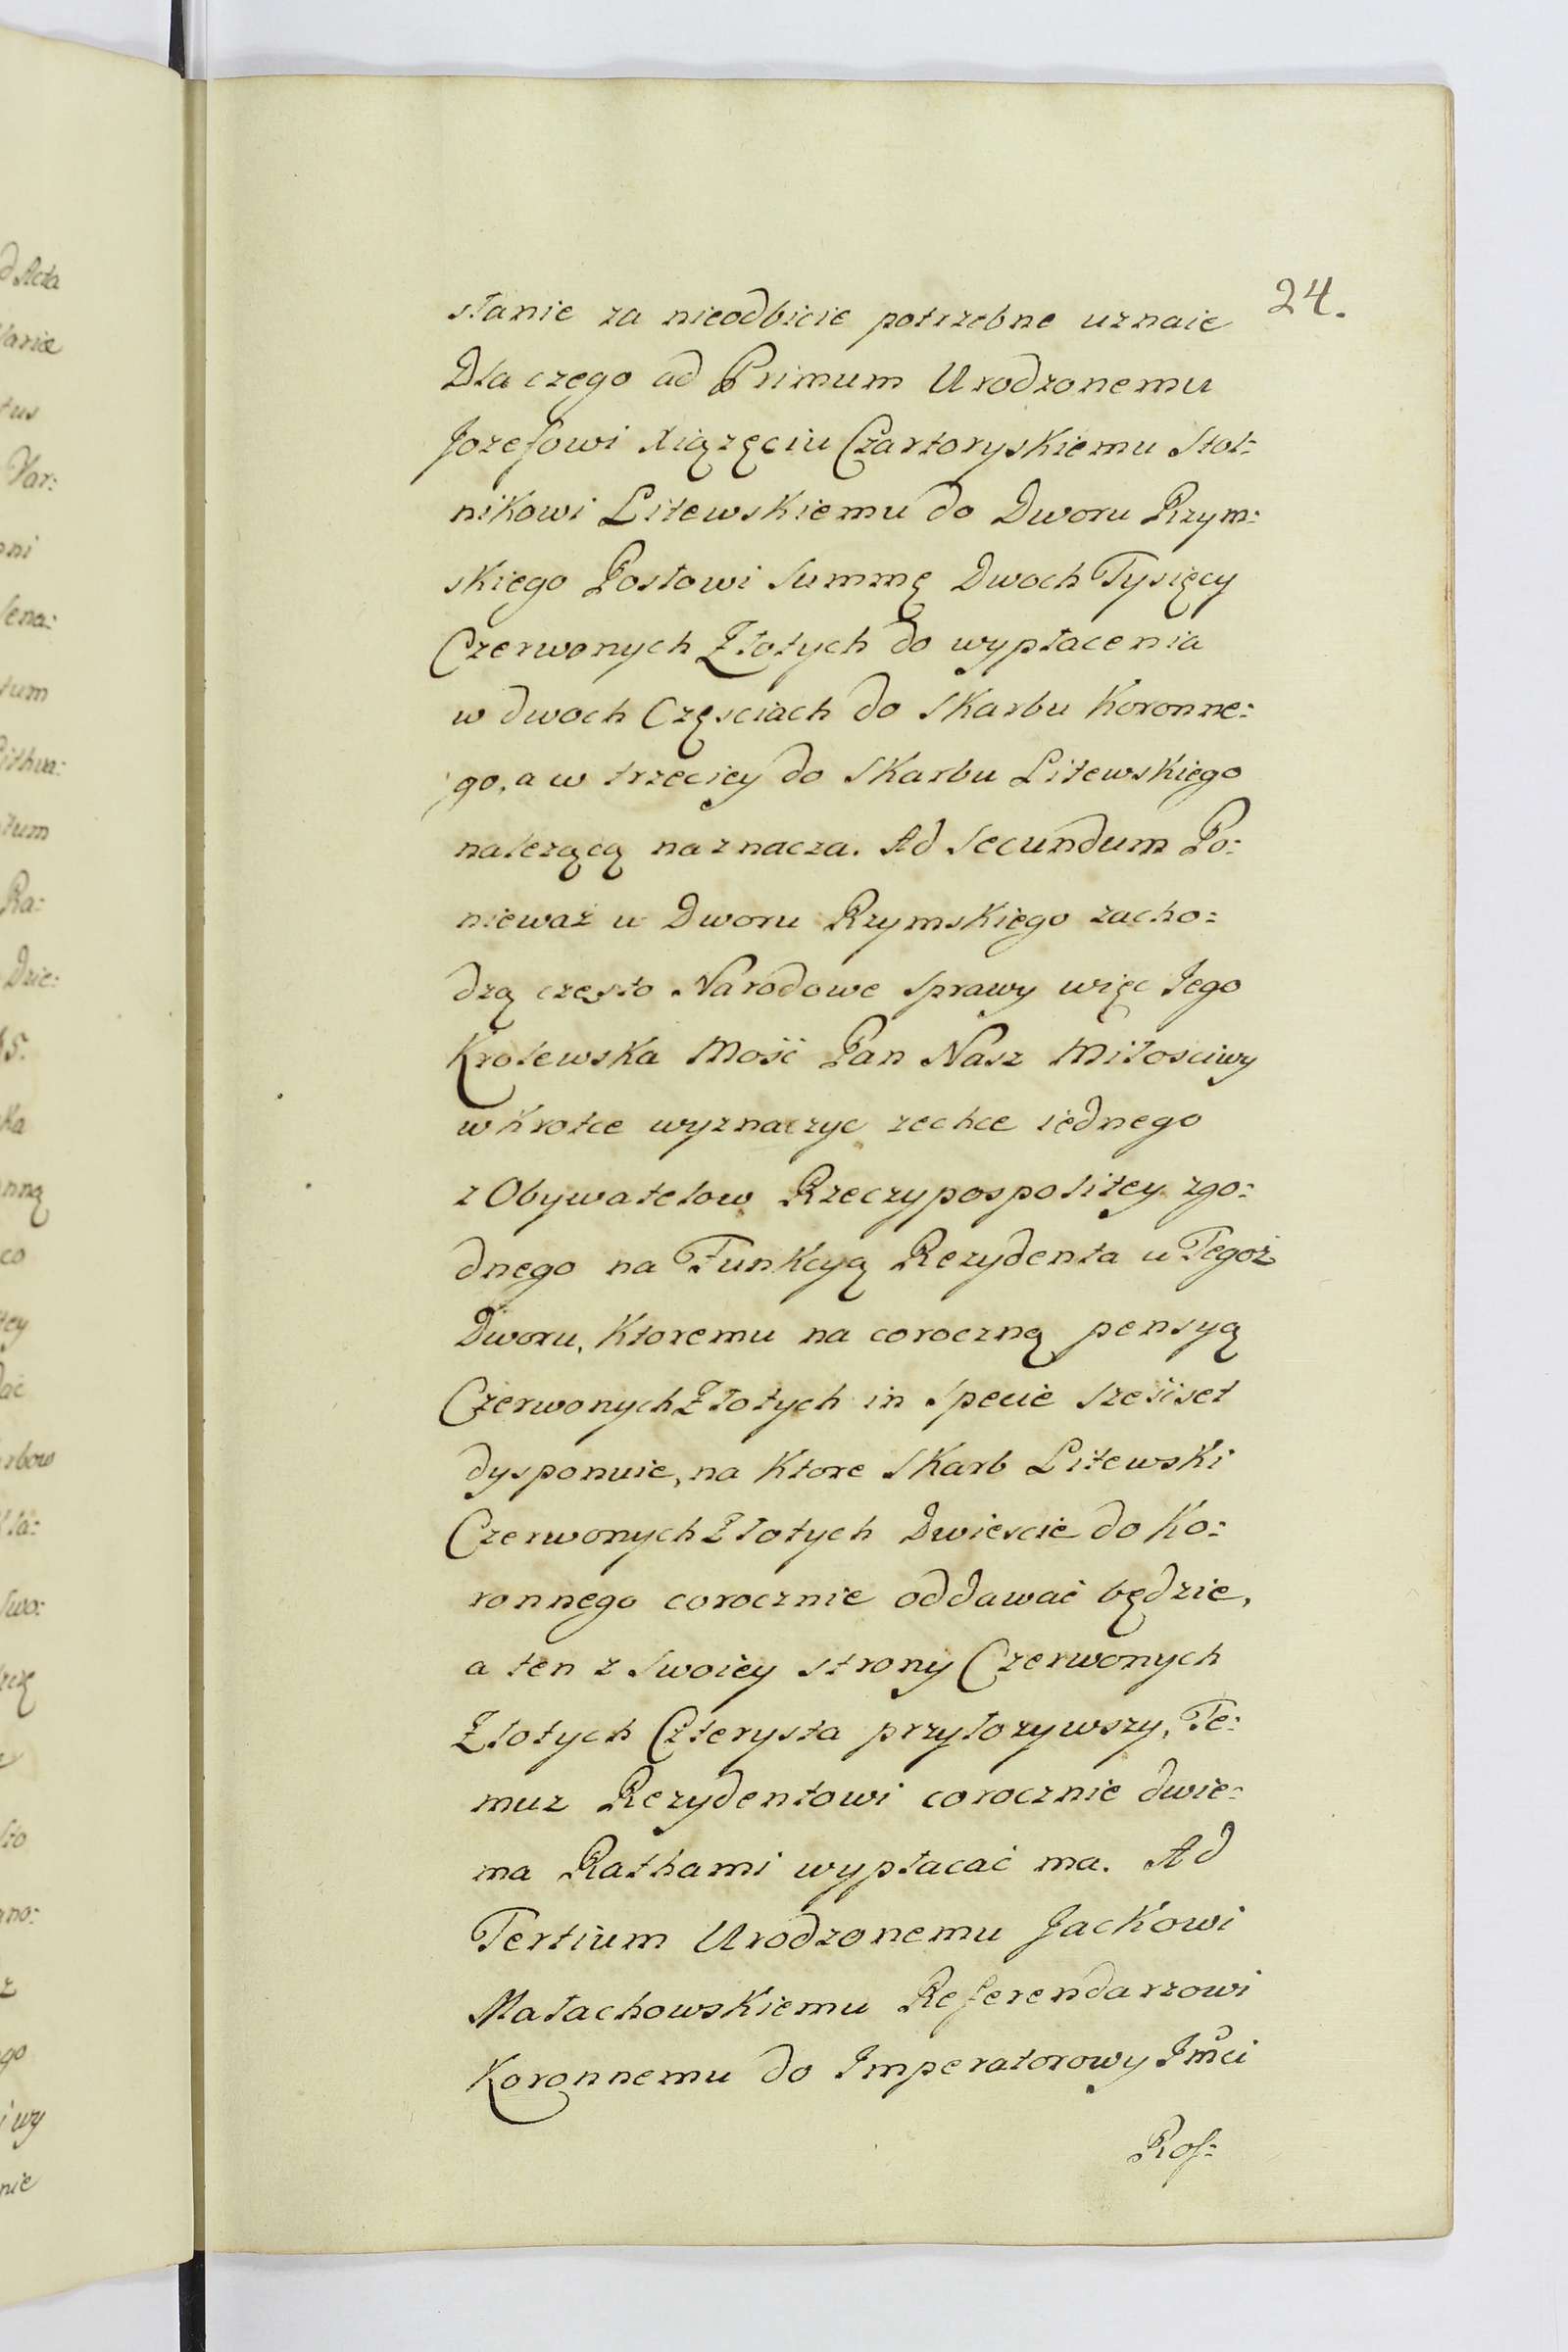 24.
słanie za nieodbicie potrzebne uznaie
Dla czego ad Primum Urodzonemu
Jozefowi Xiązęciu Czartoryskiemu Stol:
nikowi Litewskiemu do Dworu Rzym:
skiego Posłowi Summę Dwoch Tysięcy
Czerwonych Złotych do wypłacenia
w dwoch Częsciach do Skarbu Koronne:
go, a w trzeciey do Skarbu Litewskiego
nalezącą naznacza. Ad Secundum Po:
niewaz u Dworu Rzymskiego zacho:
dzą często Narodowe Sprawy więc Jego
Krolewska Mość Pan Nasz Miłosciwy
wkrotce wyznaczyc zechce iednego
z Obywatelow Rzeczypospolitey zgo:
dnego na Funkcyą Rezydenta u Tegoż
Dworu, Ktoremu na coroczną pensyą
Czerwonych Złotych in Specie Sześćset
dysponuie, na Ktore Skarb Litewski
Czerwonych Złotych Dwiescie do Ko:
ronnego corocznie oddawać będzie,
a ten z Swoiey strony Czerwonych
Złotych Czterysta przyłozywszy, Te:
muz Rezydentowi corocznie dwie:
ma Rathami wypłacać ma. Ad
Tertium Urodzonemu Jackowi
Małachowskiemu Referendarzowi
Koronnemu do Imperatorowy Jmci
Rof: